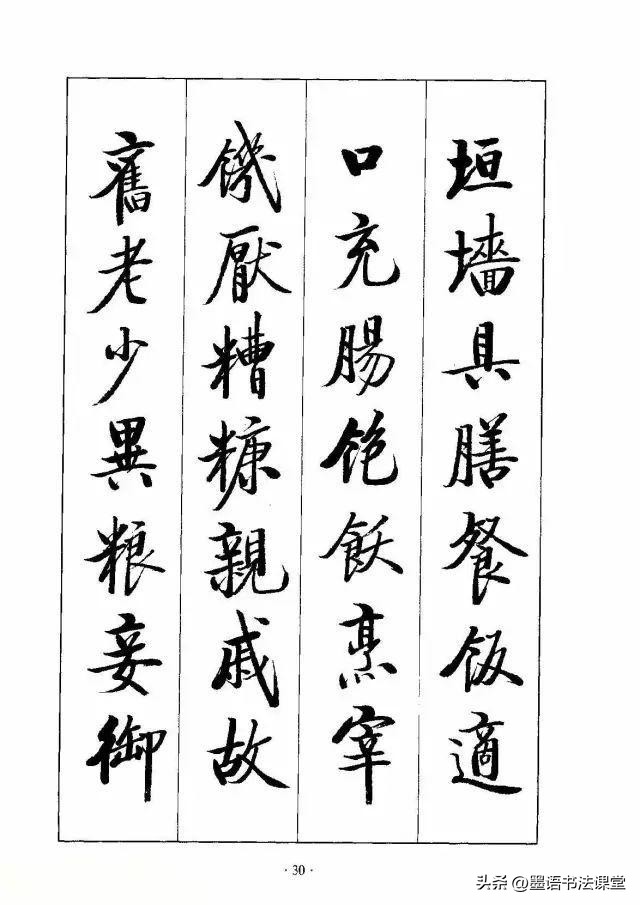 垣墻具膳餐飯適
口充腸飽飫烹宰
饑厭糟糠親戚故
舊老少異粮妾御
· 30 ·
头条 @墨语书法课堂